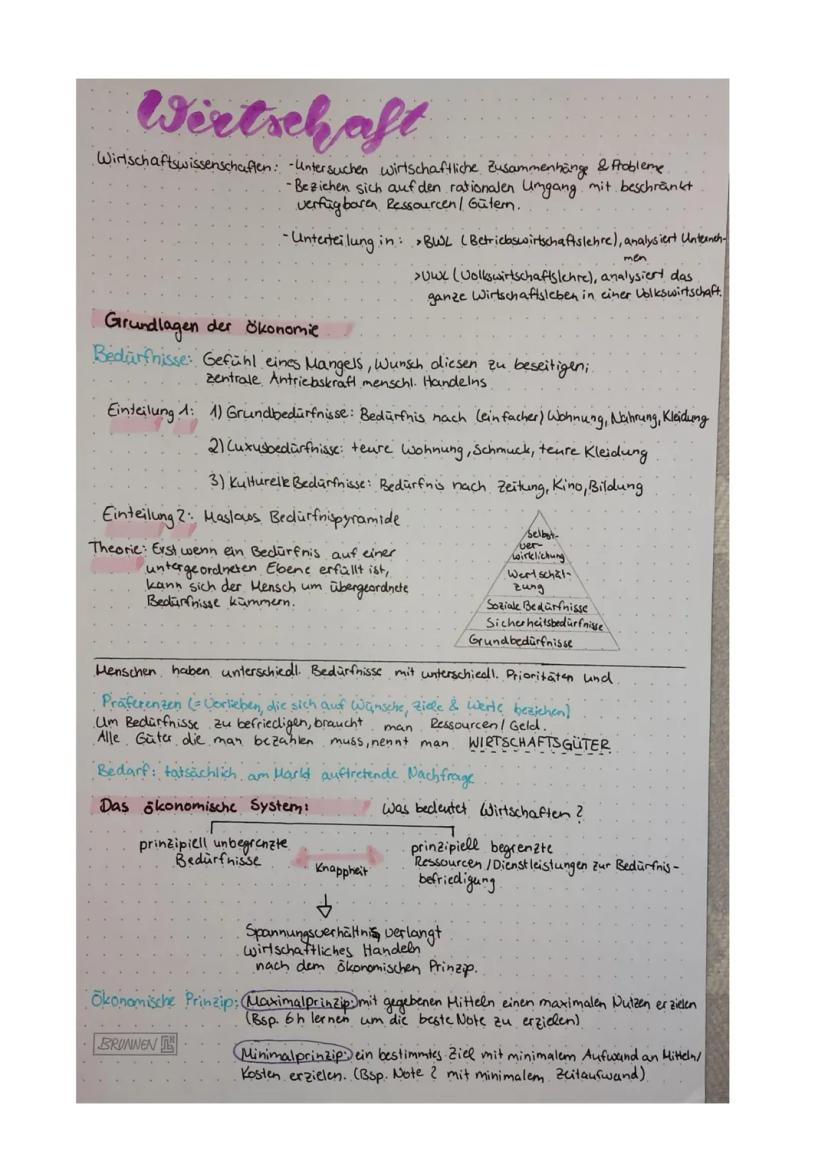 Wirtschaft
Wirtschaftswissenschaften: -Untersuchen wirtschaftliche Zusammenhänge & Probleme
-Beziehen sich auf den rationalen Umgang mit beschränkt
verfügbaren Ressourcen/Gütern.
-Unterteilung in: >BWL (Betriebswirtschaftslehre), analysiert Unterneh-
men
>VWL (Volkswirtschaftslehre), analysiert das
ganze Wirtschaftsleben in einer Volkswirtschaft.
Grundlagen der Ökonomie
Bedürfnisse: Gefühl eines Mangels, Wunsch diesen zu beseitigen;
zentrale Antriebskraft menschl. Handelns
Einteilung 1: 1) Grundbedürfnisse: Bedürfnis nach (einfacher) Wohnung, Nahrung, Kleidung
2) Luxusbedürfnisse: teure Wohnung, Schmuck, teure Kleidung
3) Kulturelle Bedürfnisse: Bedürfnis nach Zeitung, Kino, Bildung
Einteilung 2: Maslows Bedürfnispyramide
Theorie: Erst wenn ein Bedürfnis auf einer
untergeordneten Ebene erfüllt ist,
kann sich der Mensch um übergeordnete
Bedürfnisse kümmern.
Selbst-
ver-
wirklichung
Wertschät-
zung
Soziale Bedürfnisse
Sicherheitsbedürfnisse
Grundbedürfnisse
Menschen haben unterschiedl. Bedürfnisse mit unterschiedl. Prioritäten und
Präferenzen (=Vorlieben, die sich auf Wünsche, Ziele & Werte beziehen)
Um Bedürfnisse zu befriedigen, braucht man Ressourcen/Geld.
Alle Güter die man bezahlen muss, nennt man WIRTSCHAFTSGÜTER
Bedarf: tatsächlich am Markt auftretende Nachfrage
Das ökonomische System: Was bedeutet Wirtschaften?
prinzipiell unbegrenzte
Bedürfnisse
Knappheit
prinzipiell begrenzte
Ressourcen/Dienstleistungen zur Bedürfnis-
befriedigung
Spannungsverhältnis verlangt
wirtschaftliches Handeln
nach dem ökonomischen Prinzip.
Ökonomische Prinzip: Maximalprinzip: mit gegebenen Mitteln einen maximalen Nutzen erzielen
(Bsp. 6h lernen um die beste Note zu erzielen)
BRUNNEN
Minimalprinzip: ein bestimmtes Ziel mit minimalem Aufwand an Mitteln/
Kosten erzielen. (Bsp. Note 2 mit minimalem Zeitaufwand)